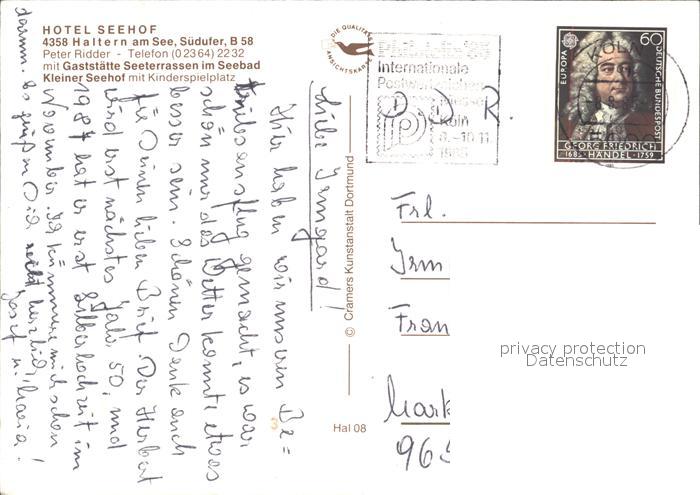 HOTEL SEEHOF
4358 Haltern am See, Südufer, B 58
Peter Ridder - Telefon (02364) 2232
mit Gaststätte Seeterrassen im Seebad
Kleiner Seehof mit Kinderspielplatz
DIE QUALITÄTS
ANSICHTSKARTE
Liebe Irmgard!
Hier haben wir unseren Be=
triebsausflug gemacht, es war
schön nur das Wetter konnte etwas
besser sein. Schönen Dank auch
für Deinen lieben Brief. Der Herbert
wird erst nächstes Jahr 50, und
1987 hat er erst Silberhochzeit im
November. Ich kümmere mich schon
darum. Es grüßen Dich recht herzlich
Josef u. Maria!
© Cramers Kunstanstalt Dortmund
3
Hal 08
Philatelia '85
Internationale
Köln
8.-10.11.
1985
D D R.
EUROPA
60
DEUTSCHE BUNDESPOST
GEORG FRIEDRICH
1685 HÄNDEL 1759
KÖLN
Frl.
Irm
Fran
Mark
965
privacy protection
Datenschutz